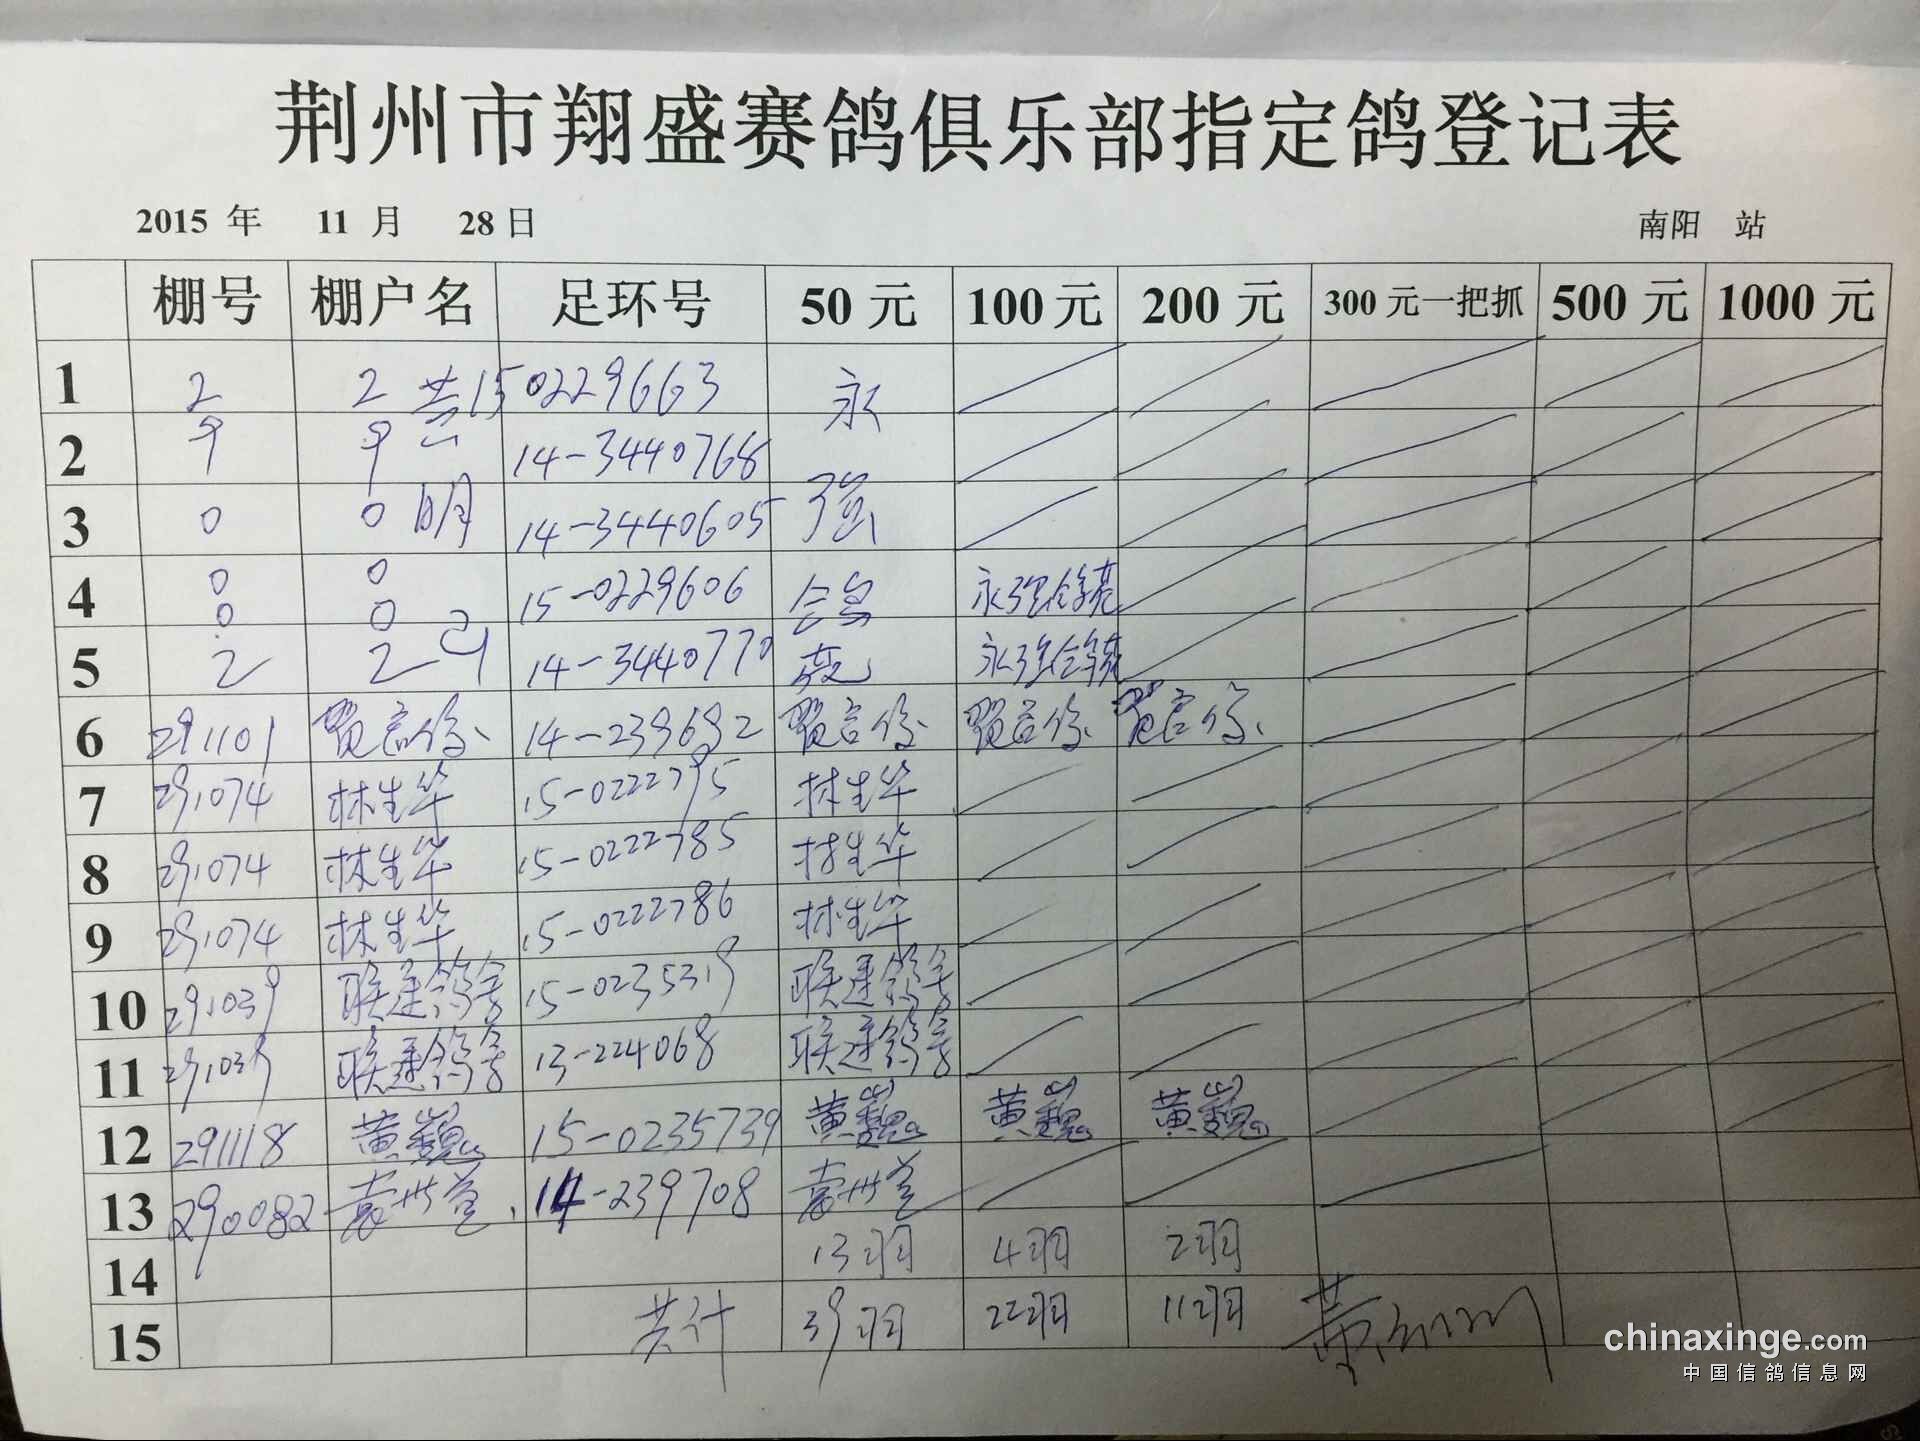 荆州市翔盛赛鸽俱乐部指定鸽登记表
2015 年 11 月 28 日 南阳 站
棚号 棚户名 足环号 50 元 100 元 200 元 300 元一把抓 500 元 1000 元
1 2 2 15 0229663 永
2 9 9 14-3440768
3 0 0 明 14-3440605 强
4 0 0 15-0229606 永强鸽苑
5 0 2 0 2 14-3440770 苑 永强鸽苑
6 291101 14-239692
7 291074 林生华 15-0222795 林生华
8 291074 林生华 15-0222785 林生华
9 291074 林生华 15-0222786 林生华
10 291039 联运鸽舍 15-0235319 联运鸽舍
11 291039 联运鸽舍 13-224068 联运鸽舍
12 291118 黄巍 15-0235739 黄巍 黄巍 黄巍
13 290082 14-239708
14 13羽 4羽 2羽
15 共计 39羽 22羽 11羽
chinaxinge.com
中国信鸽信息网